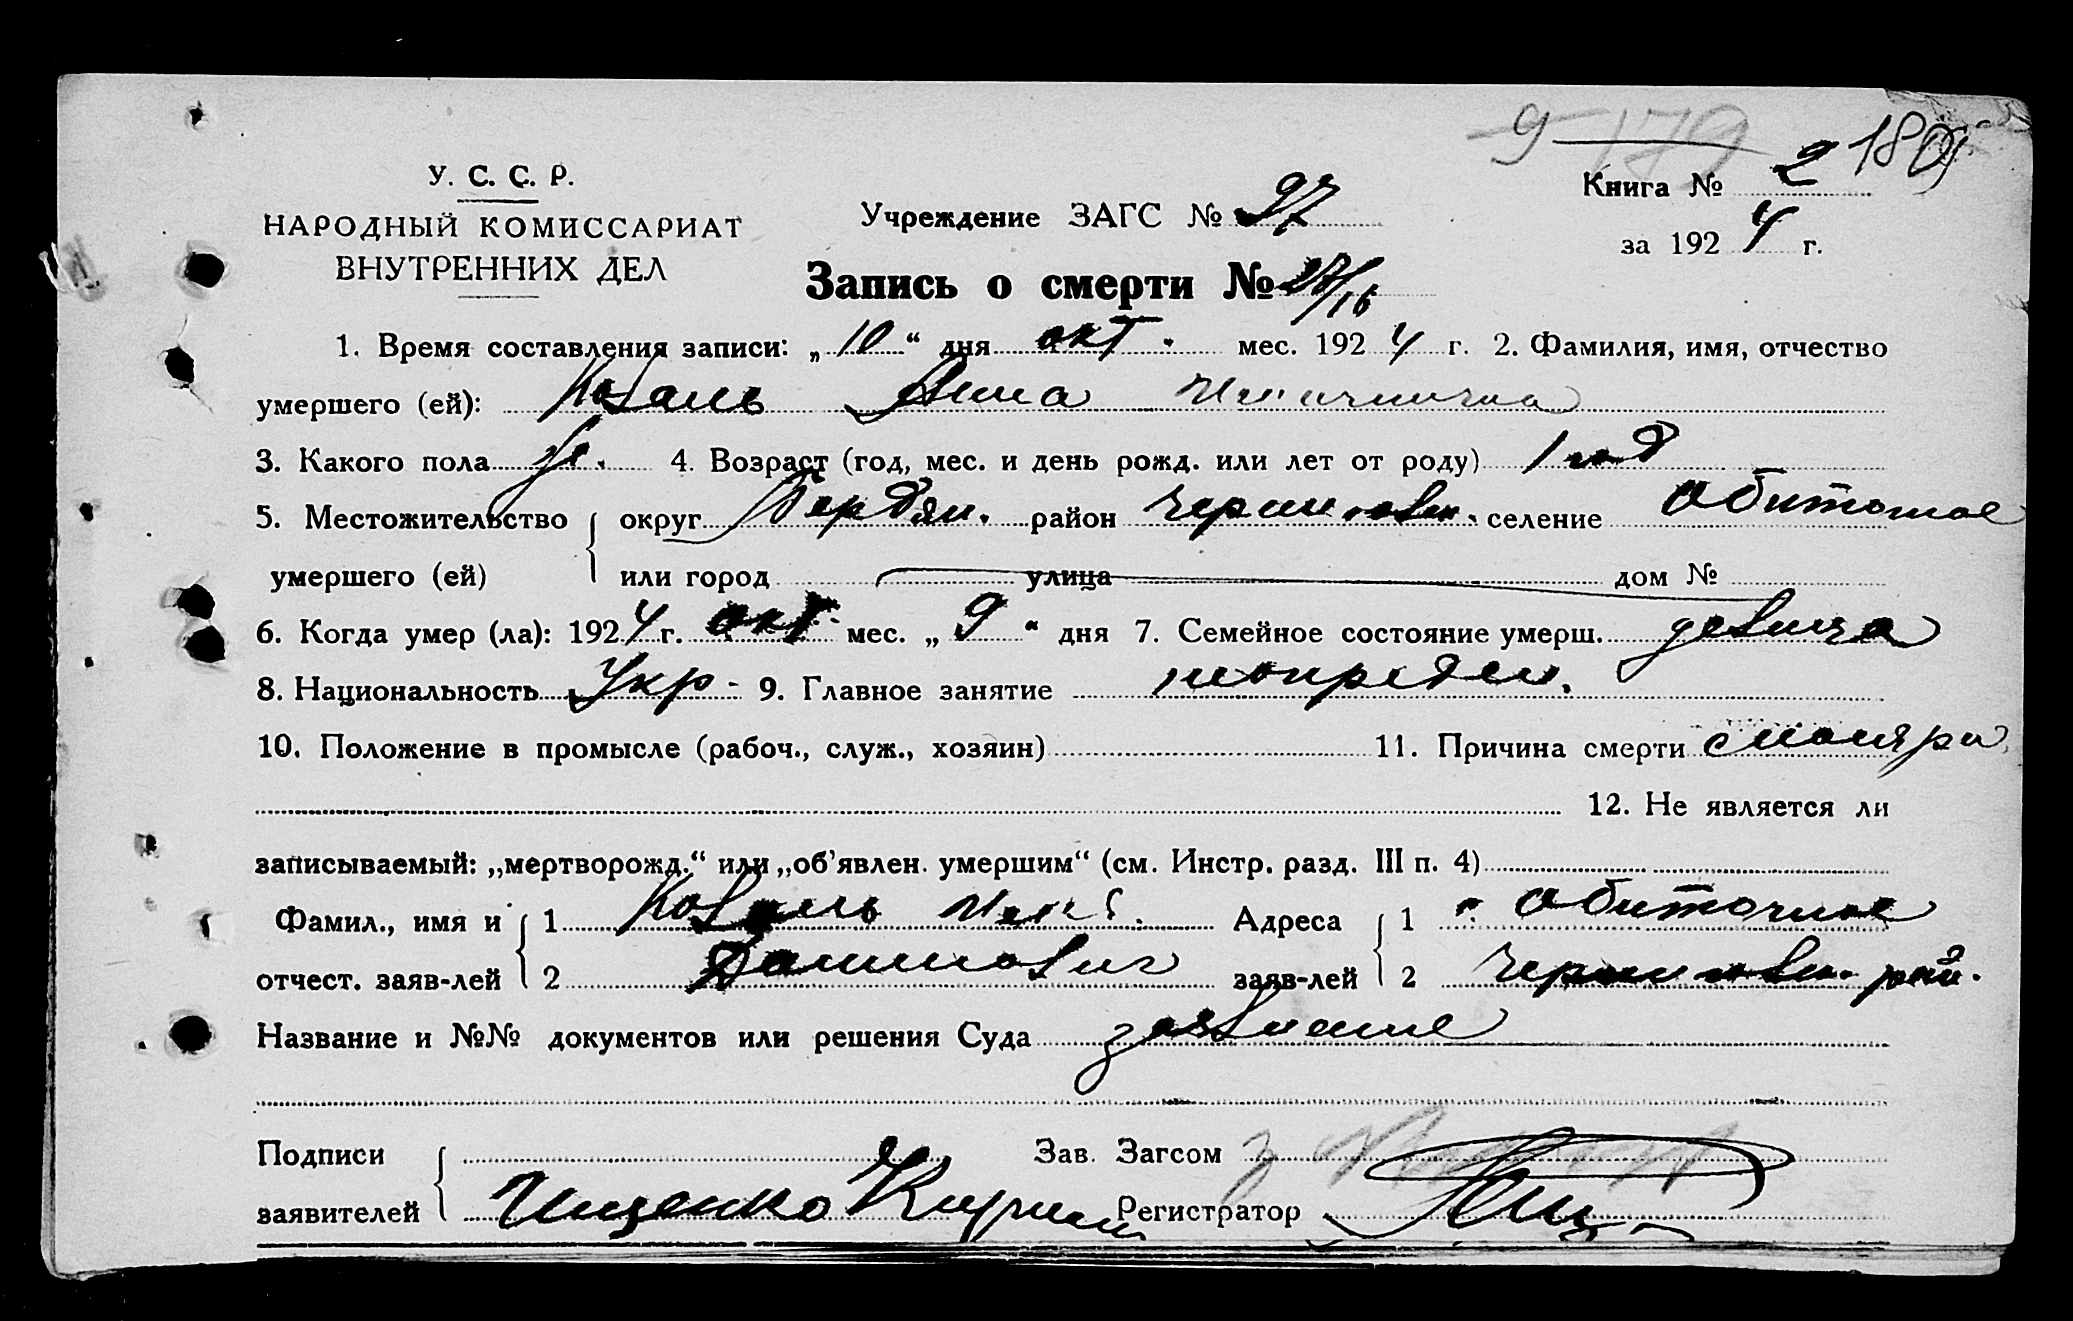 9-179
2 180
У. С. С. Р.
НАРОДНЫЙ КОМИССАРИАТ
ВНУТРЕННИХ ДЕЛ
Учреждение ЗАГС № 97
Книга № 2
за 1924 г.
Запись о смерти № 27/16
1. Время составления записи: „10“ дня окт. мес. 1924 г. 2. Фамилия, имя, отчество
умершего (ей): Коваль Анна
3. Какого пола ж. 4. Возраст (год, мес. и день рожд. или лет от роду) 1 год
5. Местожительство округ Бердян. район Черниговск. селение Обиточное
умершего (ей) или город улица дом №
6. Когда умер (ла): 1924 г. окт. мес. „9“ дня 7. Семейное состояние умерш. девица
8. Национальность Укр. 9. Главное занятие неопредел.
10. Положение в промысле (рабоч., служ., хозяин) 11. Причина смерти
12. Не является ли
записываемый: „мертворожд.“ или „об’явлен. умершим“ (см. Инстр. разд. III п. 4)
Фамил., имя и 1 Коваль Адреса 1 Обиточное
отчест. заяв-лей 2 заяв-лей 2 Черниговск. рай.
Название и №№ документов или решения Суда заявление
Подписи Зав. Загсом
заявителей Ищенко Кирилл Регистратор